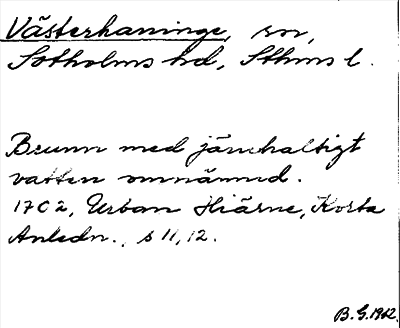 Västerhaninge, sn,
Sotholms hd, Sthms l.
Brunn med järnhaltigt
vatten omnämnd.
1702, Urban Hiärne, Korta
Anledn., s 11, 12.
B. G. 1962.